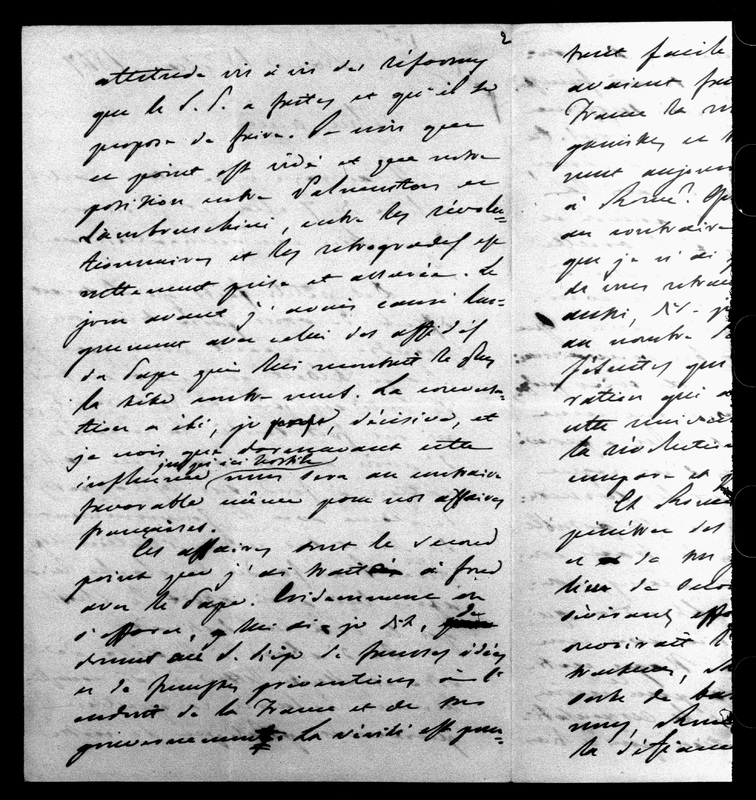 2
attitude vis à vis des réformes
que le S. P. a faites et qu'il se
propose de faire. Je crois que
ce point est vidé et que notre
position entre Palmerston et
Lambruschini, entre les révolu=
tionnaires et les retrogrades est
nettement prise et assurée. Le
jour avant j'avais causé lon=
guement avec celui des affidés
du Pape qui lui montait le plus
la tête contre nous. La conversa=
tion a été, je crois, décisive, et
je crois que dorénavant cette
influence jusqu'ici hostile nous sera au contraire
favorable même pour nos affaires
françaises.
Ces affaires sont le second
point que j'ai traité à fond
avec le Pape. Evidemment on
s'efforce, lui ai-je dit, de
donner au S. Siège de fausses idées
et de fausses préventions à l'
endroit de la France et de son
gouvernement. La vérité est pour=
tout facile
avaient
France la
à Rome?
au contraire
que je n'ai
de vous
aussi, dis-je
au nombre
Jésuites qui
ration qui
cette
la révolution
empara et
Et Rome
pénétrer des
et de
lieu de
la défiance